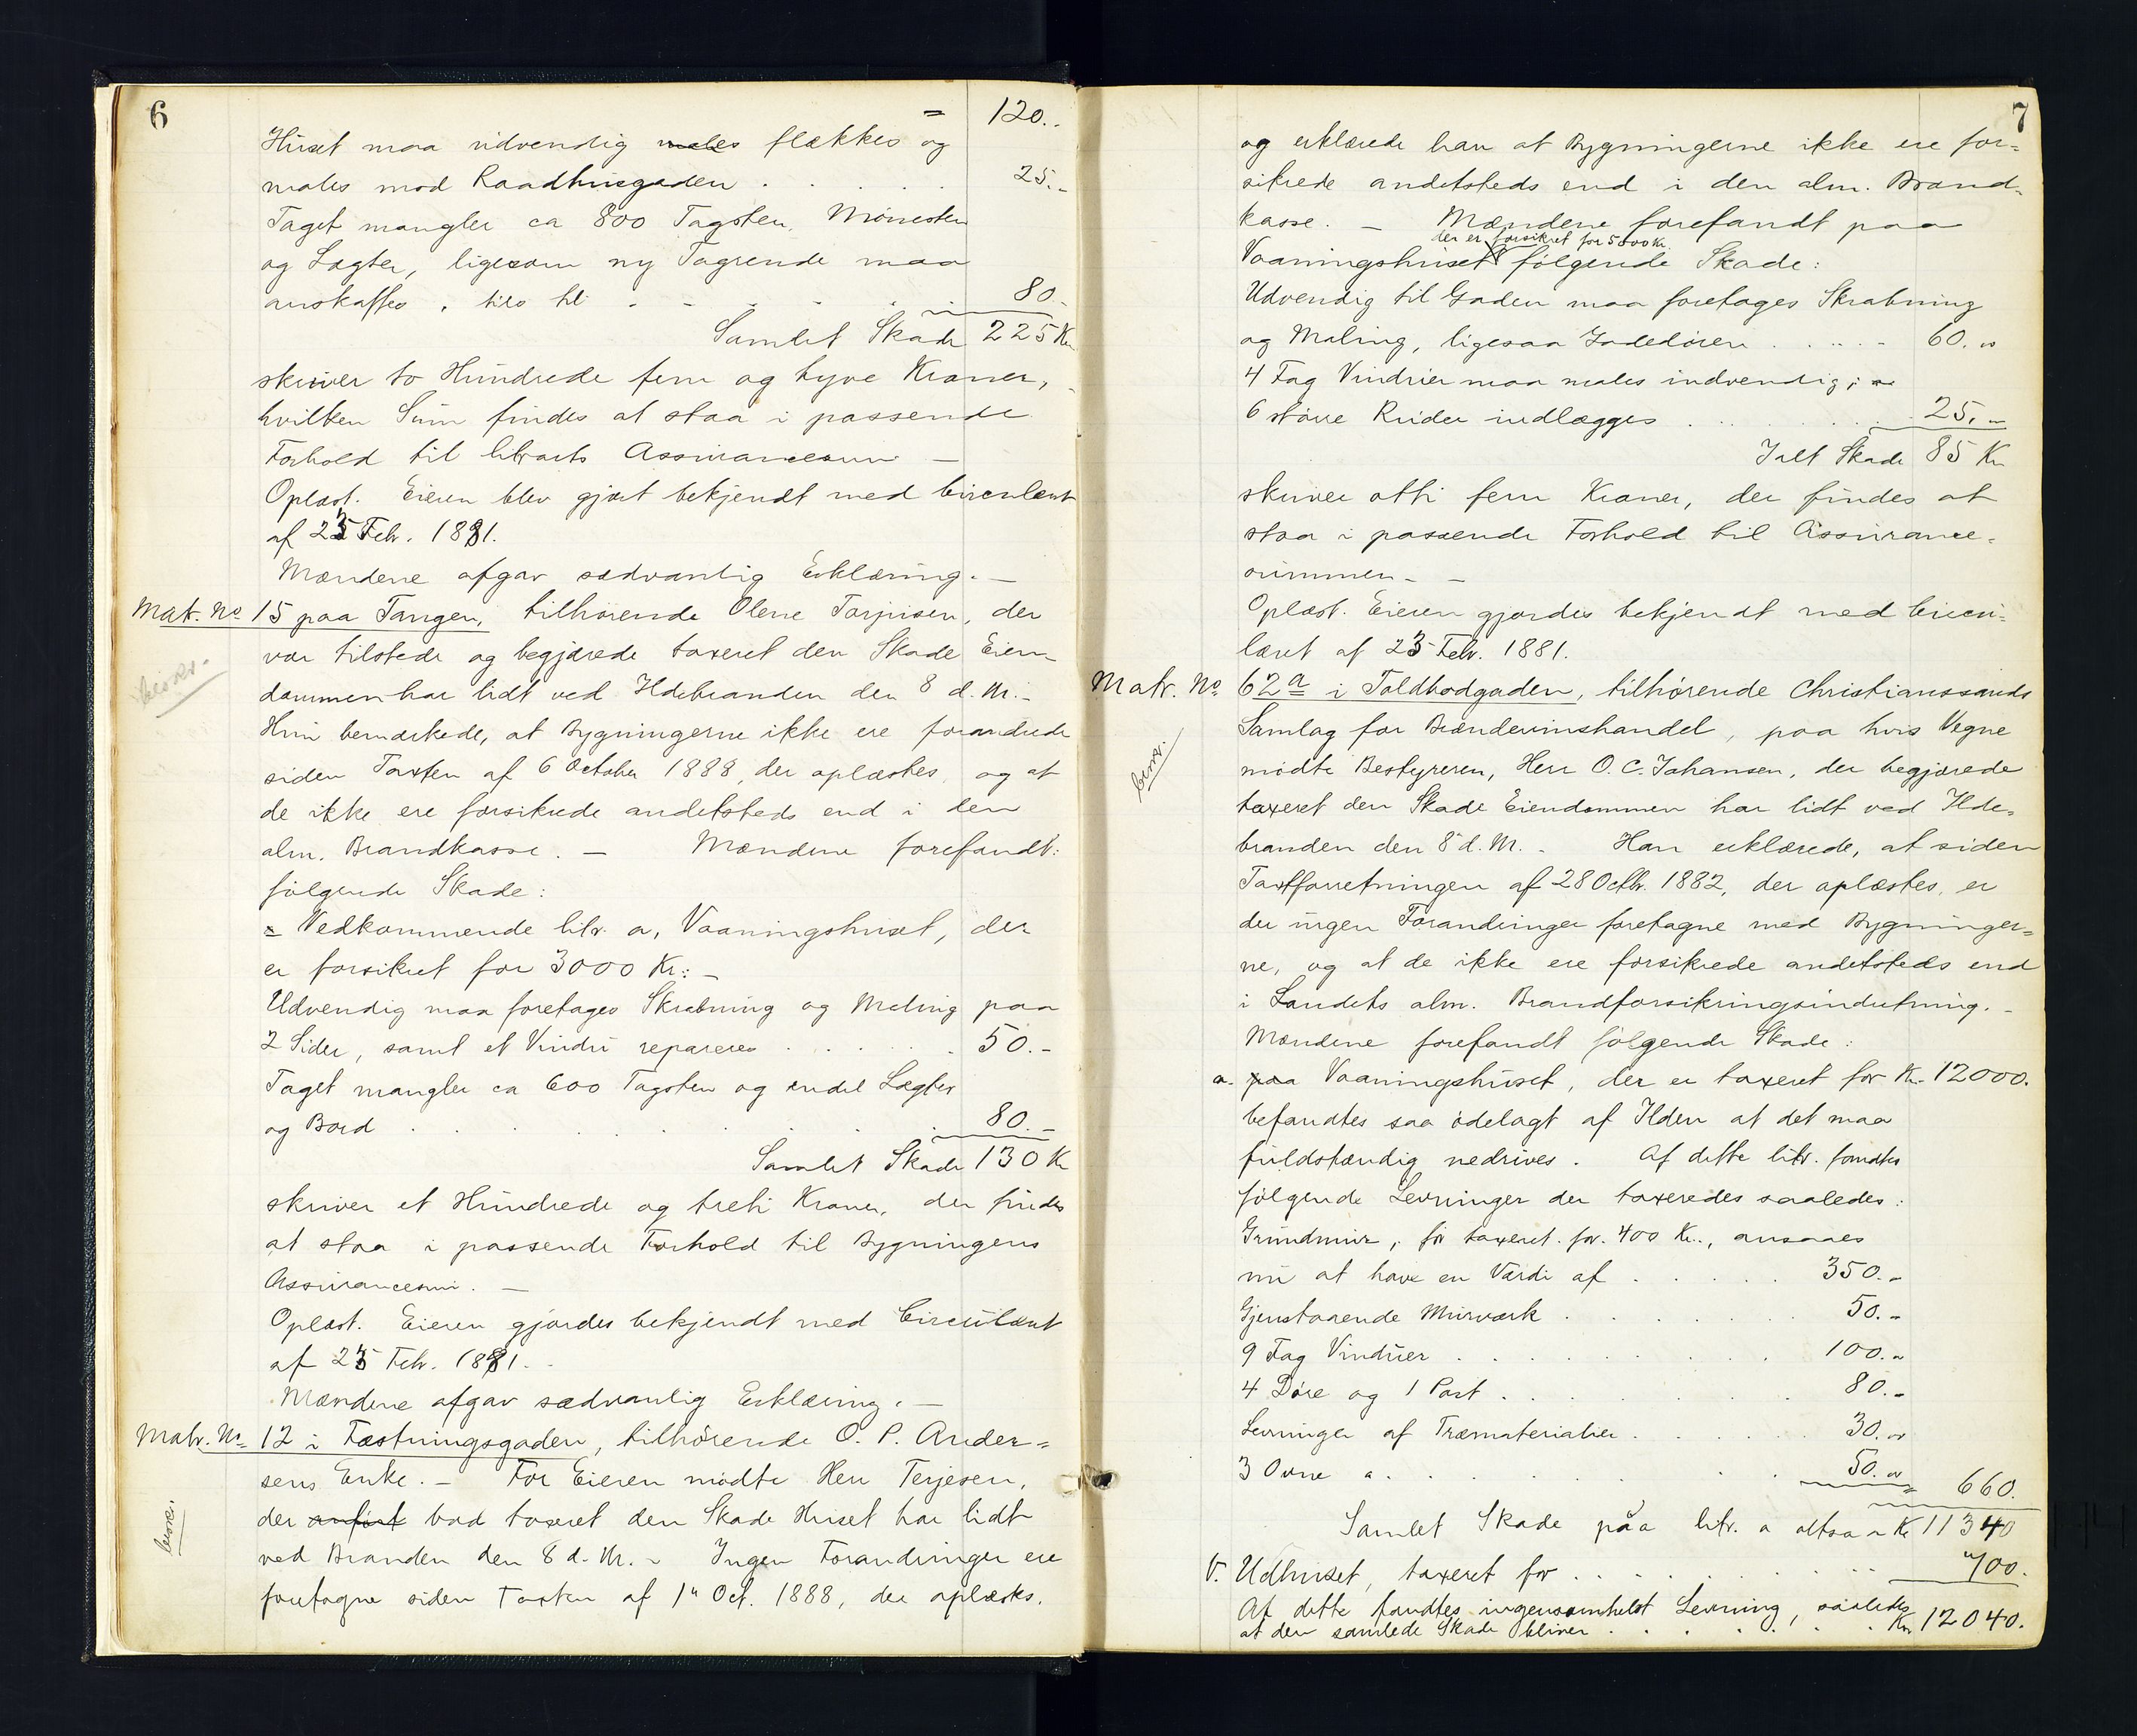 6
= 120.-
Huset maa udvendig males flækkes og
males mod Raadhusgaden . . . . . 25.-
Taget mangler ca 800 Tagsten, Mønesten
og Lægter, ligesom ny Tagrende maa
anskaffes, til . . . . . 80.-
Samlet Skade 225 Kr
skriver to Hundrede fem og tyve Kroner,
hvilken Sum findes at staa i passende
Forhold til litraets Assurancesum —
Oplæst. Eieren blev gjort bekjendt med Circulært
af 25 Feb. 1881.
Mændene afgav sædvanlig Erklæring. —
Matr. No 15 paa Tangen, tilhørende Olene Torjusen, der
var tilstede og begjærede taxeret den Skade Eien-
dommen har lidt ved Ildebranden den 8 d. M. -
Hun bemærkede, at Bygningerne ikke ere forandrede
siden Taxten af 6 October 1888, der oplæstes, og at
de ikke ere forsikrede andetsteds end i den
alm. Brandkasse. — Mændene forefandt:
følgende Skade:
Vedkommende litr. a, Vaaningshuset, der
er forsikret for 3000 Kr: -
Udvendig maa foretages Skrabning og Maling paa
2 Sider, samt et Vindu repareres . . . . . 50.-
Taget mangler ca 600 Tagsten og endel Lægter
og Bord . . . . . . . . 80.-
Samlet Skade 130 Kr
skriver et Hundrede og treti Kroner, der findes
at staa i passende Forhold til Bygningens
Assurancesum. —
Oplæst. Eieren gjordes bekjendt med Circulært
af 25 Feb. 1881. -
Mændene afgav sædvanlig Erklæring. —
Matr. No 12 i Fæstningsgaden, tilhørende O. P. Ander=
sens Enke. — For Eieren mødte Herr Terjesen,
der anført bad taxeret den Skade Huset har lidt
ved Branden den 8 d. M. - Ingen Forandringer ere
foretagne siden Taxten af 1 Oct. 1888, der oplæstes,
7
og erklærede han at Bygningerne ikke ere for=
sikrede andetsteds end i den alm. Brand-
kasse. — Mændene forefandt paa
der er forsikret for 5000 Kr.
Vaaningshuset følgende Skade:
Udvendig til Gaden maa foretages Skrabning
og Maling, ligesaa Gadedøren . . . . . 60.-
4 Fag Vinduer maa males indvendig;
6 større Ruder indlægges . . . . . 25.-
Ialt Skade 85 Kr
skriver otti fem Kroner, der findes at
staa i passende Forhold til Assurance-
summen. —
Oplæst. Eieren gjordes bekjendt med Circu=
læret af 25 Feb. 1881.
Matr. No 62a i Toldbodgaden, tilhørende Christianssands
Samlag for Brændevinshandel, paa hvis Vegne
mødte Bestyreren, Herr O. C. Johansen, der begjærede
taxeret den Skade Eiendommen har lidt ved Ilde-
branden den 8 d. M. - Han erklærede, at siden
Taxtforretningen af 28 Octbr. 1882, der oplæstes, er
der ingen Forandringer foretagne med Bygninger=
ne, og at de ikke ere forsikrede andetsteds end
i Landets alm. Brandforsikringsindretning. -
Mændene forefandt følgende Skade:
a. paa Vaaningshuset, der er taxeret for Kr. 12000.
befandtes saa ødelagt af Ilden at det maa
fuldstændig nedrives. Af dette litr. fandtes
følgende Levninger der taxeredes saaledes:
Grundmur, før taxeret for 400 Kr., ansaaes
nu at have en Værdi af . . . . . 350.-
Gjenstaaende Murværk . . . . . . 50.-
9 Fag Vinduer . . . . . . . 100.-
4 Døre og 1 Port . . . . . . 80.-
Levninger af Træmaterialier . . . . . 30.-
3 Ovne a . . . . . . . 50.-
660.
Samlet Skade paa litr. a altsaa Kr 11340
b. Udhuset, taxeret for . . . . . . 700.
Af dette fandtes ingensomhelst Levning, saaledes
at den samlede Skade bliver . . . . . . Kr 12040.